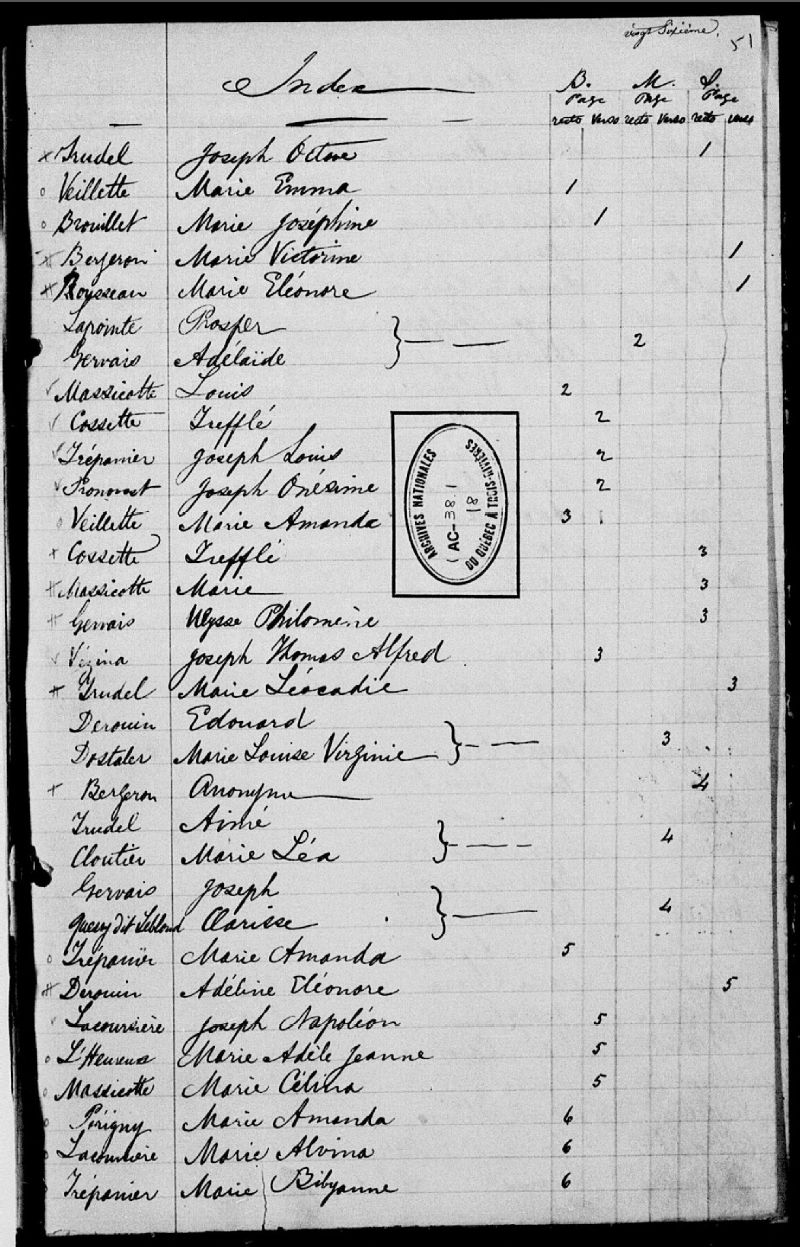 vingt Sixième.
51
Index
B. M. S.
Page Page Page
recto verso recto verso recto verso
x Trudel Joseph Octave 1
o Veillette Marie Emma 1
o Brouillet Marie Joséphine 1
Bergeron Marie Victorine 1
Rousseau Marie Eléonore 1
Lapointe Prosper
Gervais Adélaïde } 2
√ Massicotte Louis 2
√ Cossette Trefflé 2
√ Trépanier Joseph Louis 2
√ Pronovost Joseph Onésime 2
o Veillette Marie Amanda 3
+ Cossette Trefflé 3
Massicotte Marie 3
Gervais Ulysse Philomène 3
√ Vézina Joseph Thomas Alfred 3
Trudel Marie Léocadie 3
Derouin Edouard
Dostaler Marie Louise Virginie } 3
+ Bergeron Anonyme 4
Trudel Aimé
Cloutier Marie Léa } 4
Gervais Joseph
Quessy dit Leblond Clarisse } 4
o Trépanier Marie Amanda 5
Derouin Adéline Eléonore 5
√ Lacoursière Joseph Napoléon 5
o L'Heureux Marie Adèle Jeanne 5
o Massicotte Marie Célina 5
o Périgny Marie Amanda 6
o Lacoursière Marie Alvina 6
Trépanier Marie Bibyanne 6
ARCHIVES NATIONALES
AC-38.1
18
DU QUÉBEC À TROIS-RIVIÈRES